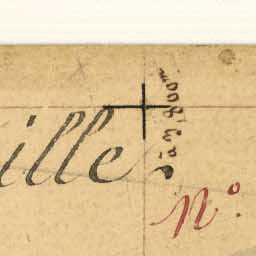 ille
à 7,800m
N°.